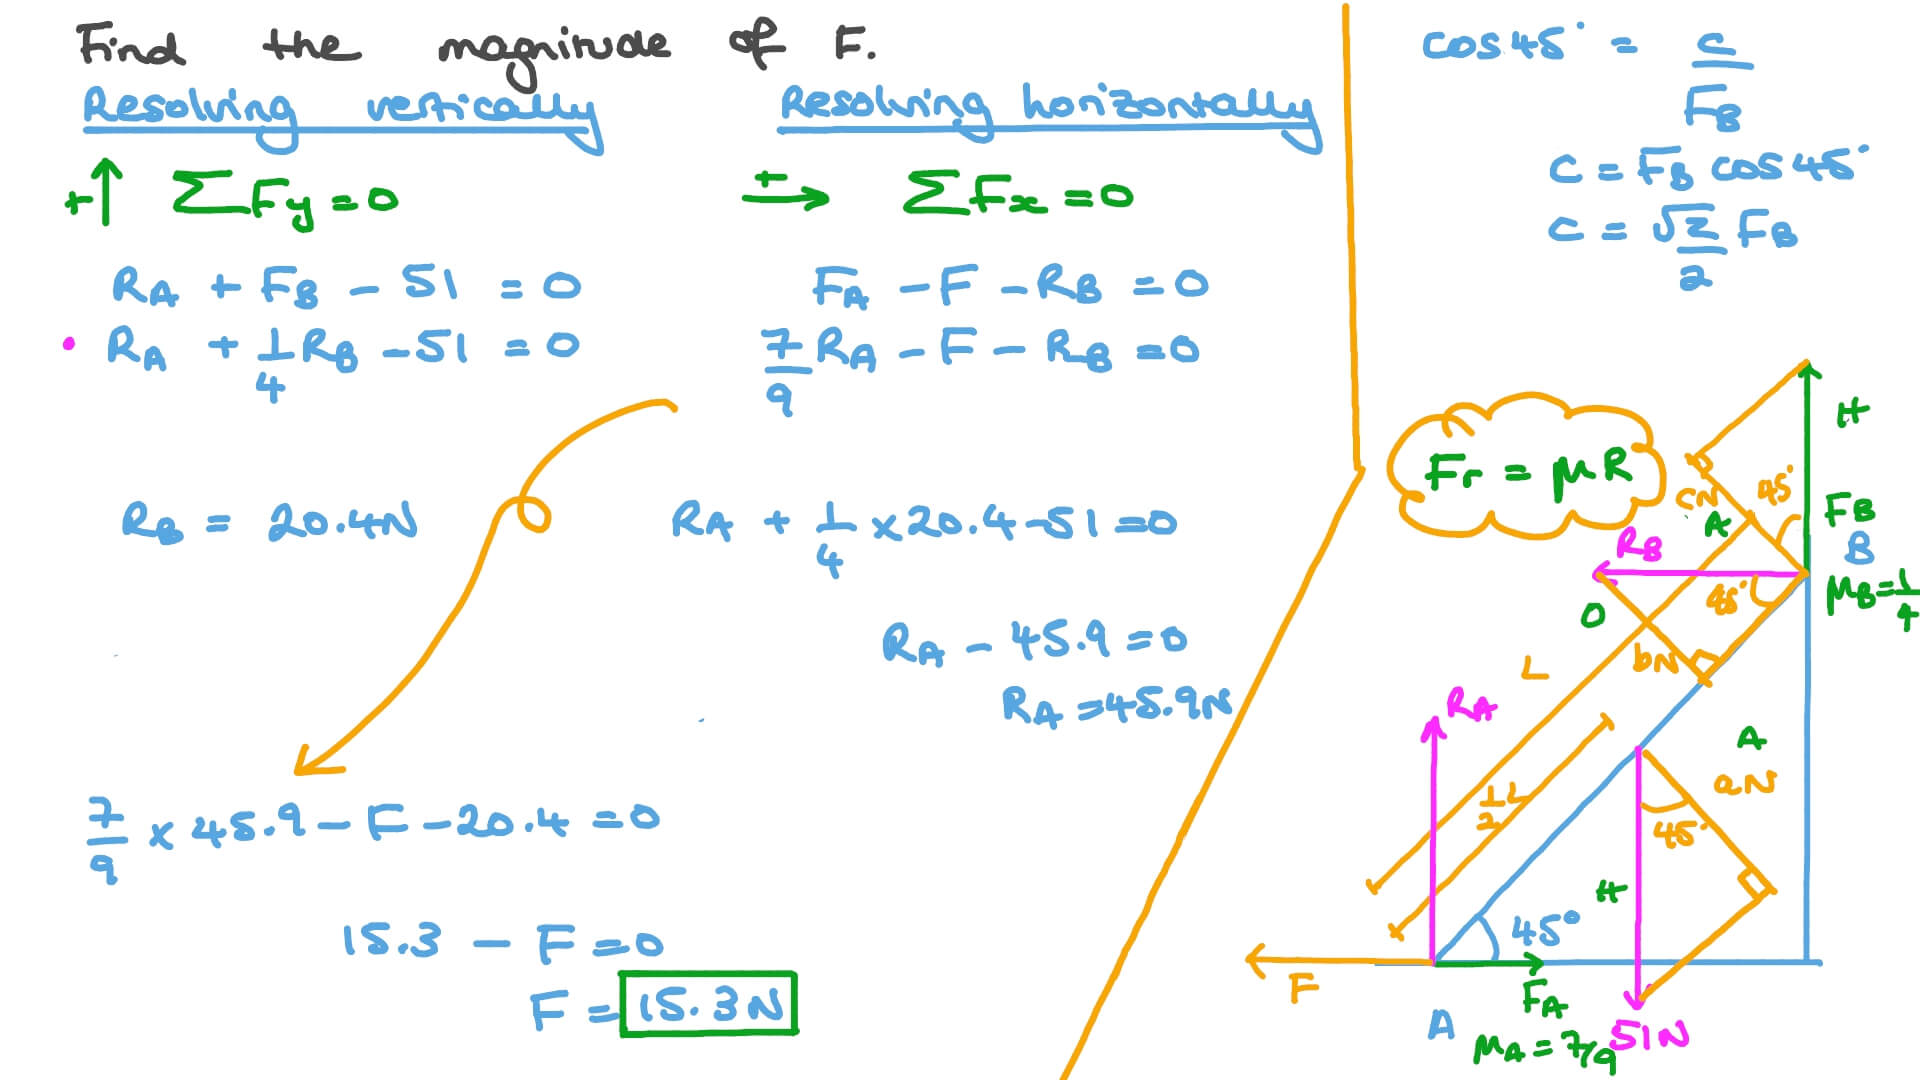 Find the magnitude of F.
Resolving vertically
+↑ ΣFy = 0
RA + FB - 51 = 0
RA + 1/4 RB - 51 = 0
Resolving horizontally
+→ ΣFx = 0
FA - F - RB = 0
7/9 RA - F - RB = 0
RB = 20.4N
RA + 1/4 × 20.4 - 51 = 0
RA - 45.9 = 0
RA = 45.9N
7/9 × 45.9 - F - 20.4 = 0
15.3 - F = 0
F = 15.3N
cos45° = C/FB
C = FB cos45°
C = √2/2 FB
Fr = μR
H
45°
CN
A
FB
B
RB
μB = 1/4
45°
O
bN
L
RA
A
aN
1/2 L
45°
H
45°
F
FA
A
51N
μA = 7/9